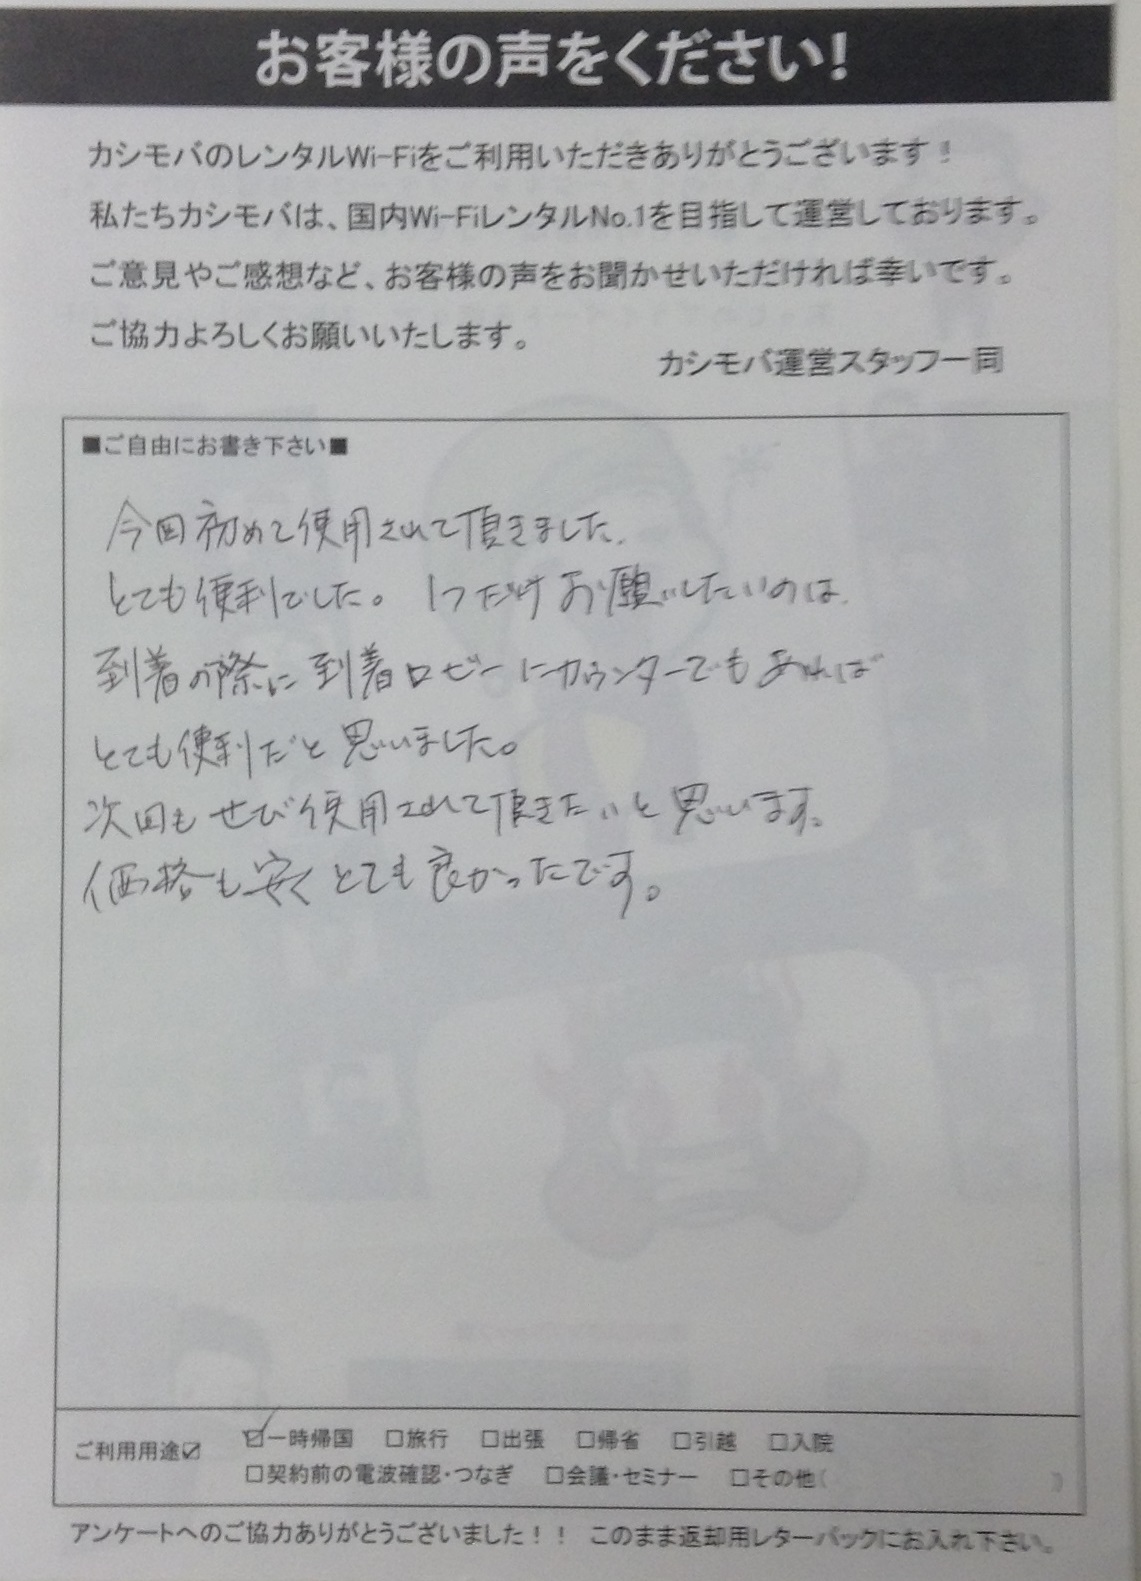 お客様の声をください!
カシモバのレンタルWi-Fiをご利用いただきありがとうございます！
私たちカシモバは、国内Wi-FiレンタルNo.1を目指して運営しております。
ご意見やご感想など、お客様の声をお聞かせいただければ幸いです。
ご協力よろしくお願いいたします。
カシモバ運営スタッフ一同
■ご自由にお書き下さい■
今回初めて使用されて頂きました。
とても便利でした。1つだけお願いしたいのは、
到着の際に到着ロビーにカウンターでもあれば
とても便利だと思いました。
次回もぜひ使用されて頂きたいと思います。
価格も安くとても良かったです。
ご利用用途☑ ☑一時帰国 □旅行 □出張 □帰省 □引越 □入院
□契約前の電波確認・つなぎ □会議・セミナー □その他( )
アンケートへのご協力ありがとうございました！！ このまま返却用レターパックにお入れ下さい。